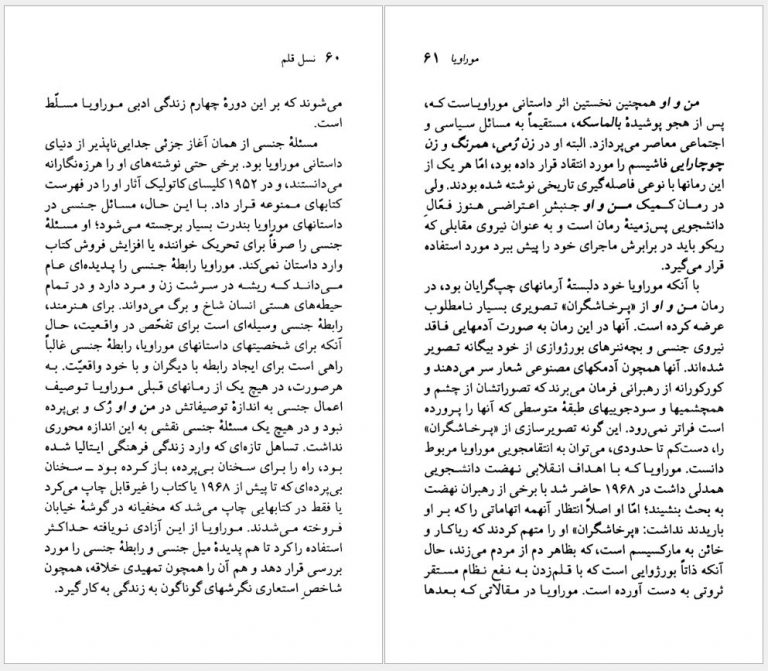 ۶۰ نسل قلم
می‌شوند که بر این دورهٔ چهارم زندگی ادبی موراویا مسلّط
است.
مسئلهٔ جنسی از همان آغاز جزئی جدایی‌ناپذیر از دنیای
داستانی موراویا بود. برخی حتی نوشته‌های او را هرزه‌نگارانه
می‌دانستند، و در ۱۹۵۲ کلیسای کاتولیک آثار او را در فهرست
کتابهای ممنوعه قرار داد. با این حال، مسائل جنسی در
داستانهای موراویا بندرت بسیار برجسته می‌شود؛ او مسئلهٔ
جنسی را صرفاً برای تحریک خواننده یا افزایش فروش کتاب
وارد داستان نمی‌کند. موراویا رابطهٔ جنسی را پدیده‌ای عام
می‌داند که ریشه در سرشت زن و مرد دارد و در تمام
حیطه‌های هستی انسان شاخ و برگ می‌دواند. برای هنرمند،
رابطهٔ جنسی وسیله‌ای است برای تفحّص در واقعیت، حال
آنکه برای شخصیتهای داستانهای موراویا، رابطهٔ جنسی غالباً
راهی است برای ایجاد رابطه با دیگران و با خود واقعیّت. به
هرصورت، در هیچ یک از رمانهای قبلی موراویا توصیف
اعمال جنسی به اندازهٔ توصیفاتش در من و او رُک و بی‌پرده
نبود و در هیچ یک مسئلهٔ جنسی نقشی به این اندازه محوری
نداشت. تساهل تازه‌ای که وارد زندگی فرهنگی ایتالیا شده
بود، راه را برای سخنان بی‌پرده، باز کرده بود ـ سخنان
بی‌پرده‌ای که تا پیش از ۱۹۶۸ یا کتاب را غیرقابل چاپ می‌کرد
یا فقط در کتابهایی چاپ می‌شد که مخفیانه در گوشهٔ خیابان
فروخته می‌شدند. موراویا از این آزادی نویافته حداکثر
استفاده را کرد تا هم پدیدهٔ میل جنسی و رابطهٔ جنسی را مورد
بررسی قرار دهد و هم آن را همچون تمهیدی خلاقه، همچون
شاخصِ استعاری نگرشهای گوناگون به زندگی به کار گیرد.
موراویا ۶۱
من و او همچنین نخستین اثر داستانی موراویاست که،
پس از هجو پوشیدهٔ بالماسکه، مستقیماً به مسائل سیاسی و
اجتماعی معاصر می‌پردازد. البته او در زن رُمی، همرنگ و زن
چوچارایی فاشیسم را مورد انتقاد قرار داده بود، امّا هر یک از
این رمانها با نوعی فاصله‌گیری تاریخی نوشته شده بودند. ولی
در رمان کمیک من و او جنبشِ اعتراضی هنوز فعّالِ
دانشجویی پس‌زمینهٔ رمان است و به عنوان نیروی مقابلی که
ریکو باید در برابرش ماجرای خود را پیش ببرد مورد استفاده
قرار می‌گیرد.
با آنکه موراویا خود دلبستهٔ آرمانهای چپ‌گرایان بود، در
رمان من و او از «پرخاشگران» تصویری بسیار نامطلوب
عرضه کرده است. آنها در این رمان به صورت آدمهایی فاقد
نیروی جنسی و بچه‌ننرهای بورژوازی از خود بیگانه تصویر
شده‌اند. آنها همچون آدمکهای مصنوعی شعار سر می‌دهند و
کورکورانه از رهبرانی فرمان می‌برند که تصوراتشان از چشم و
همچشمیها و سودجوییهای طبقهٔ متوسطی که آنها را پرورده
است فراتر نمی‌رود. این گونه تصویرسازی از «پرخاشگران»
را، دست‌کم تا حدودی، می‌توان به انتقامجویی موراویا مربوط
دانست. موراویا که با اهداف انقلابی نهضت دانشجویی
همدلی داشت در ۱۹۶۸ حاضر شد با برخی از رهبران نهضت
به بحث بنشیند؛ امّا او اصلاً انتظار آنهمه اتهاماتی را که بر او
باریدند نداشت: «پرخاشگران» او را متهم کردند که ریاکار و
خائن به مارکسیسم است، که بظاهر دم از مردم می‌زند، حال
آنکه ذاتاً بورژوایی است که با قلم‌زدن به نفع نظام مستقر
ثروتی به دست آورده است. موراویا در مقالاتی که بعدها